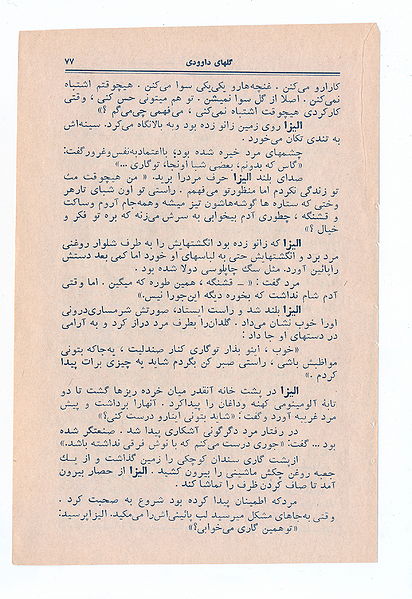 گلهای داوودی
۷۷
کارارو می‌کنن . غنچه‌هارو یکی‌یکی سوا می‌کنن . هیچوقتم اشتباه
نمی‌کنن . اصلا از گل سوا نمیشن . تو هم میتونی حس کنی ، وقتی
کارکردی هیچوقت اشتباه نمی‌کنی ، می‌فهمی چی‌می‌گم ؟»
الیزا روی زمین زانو زده بود وبه بالانگاه می‌کرد. سینه‌اش
به تندی تکان می‌خورد .
چشمهای مرد خیره شده بود، بااعتمادبه‌نفس‌وغرورگفت:
«گاس که بدونم، بعضی شبا اونجا، توگاری ...»
صدای بلند الیزا حرف مردرا برید. « من هیچوقت مث
تو زندگی نکردم اما منظورتو می‌فهمم . راستی تو اون شبای تارهر
وختی که ستاره ها گوشه‌هاشون تیز میشه وهمه‌جام آروم وساکت
و قشنگه ، چطوری آدم بیخوابی به سرش می‌زنه که بره تو فکر و
خیال ؟»
الیزا که زانو زده بود انگشتهایش را به طرف شلوار روغنی
مرد برد و انگشتهایش حتی به لباسهای او خورد اما کمی بعد دستش
راپائین آورد. مثل سگ چاپلوسی دولا شده بود .
مرد گفت : « ــ قشنگه ، همین طوره که میگین . اما وقتی
آدم شام نداشت که بخوره دیگه این‌جورا نیس.»
الیزا بلند شد و راست ایستاد، صورتش شرمساری‌درونی
اورا خوب نشان می‌داد . گلدان‌را بطرف مرد دراز کرد و به آرامی
در دستهای او جا داد :
«خوب ، اینو بذار توگاری کنار صندلیت ، یه‌جاکه بتونی
مواظبش باشی ، راستی صبر کن بگردم شاید یه چیزی برات پیدا
کردم .»
الیزا در پشت خانه آنقدر میان خرده ریزها گشت تا دو
تابهٔ آلومینومی کهنه وداغان را پیداکرد . آنهارا برداشت و پیش
مرد غریبه آورد وگفت : «شاید بتونی اینارو درست کنی؟»
در رفتار مرد دگرگونی آشکاری پیدا شد . صنعتگر شده
بود ... گفت: «جوری درست می‌کنم که با نوش فرقی نداشته باشد.»
ازپشت گاری سندان کوچکی را زمین گذاشت و از یك
جعبه روغن چکش ماشینی را بیرون کشید . الیزا از حصار بیرون
آمد تا صاف کردن ظرف را تماشا کند .
مردکه اطمینان پیدا کرده بود شروع به صحبت کرد .
وقتی به‌جاهای مشکل میرسید لب پائینی‌اش‌را می‌مکید. الیزاپرسید:
«توهمین گاری می‌خوابی؟»